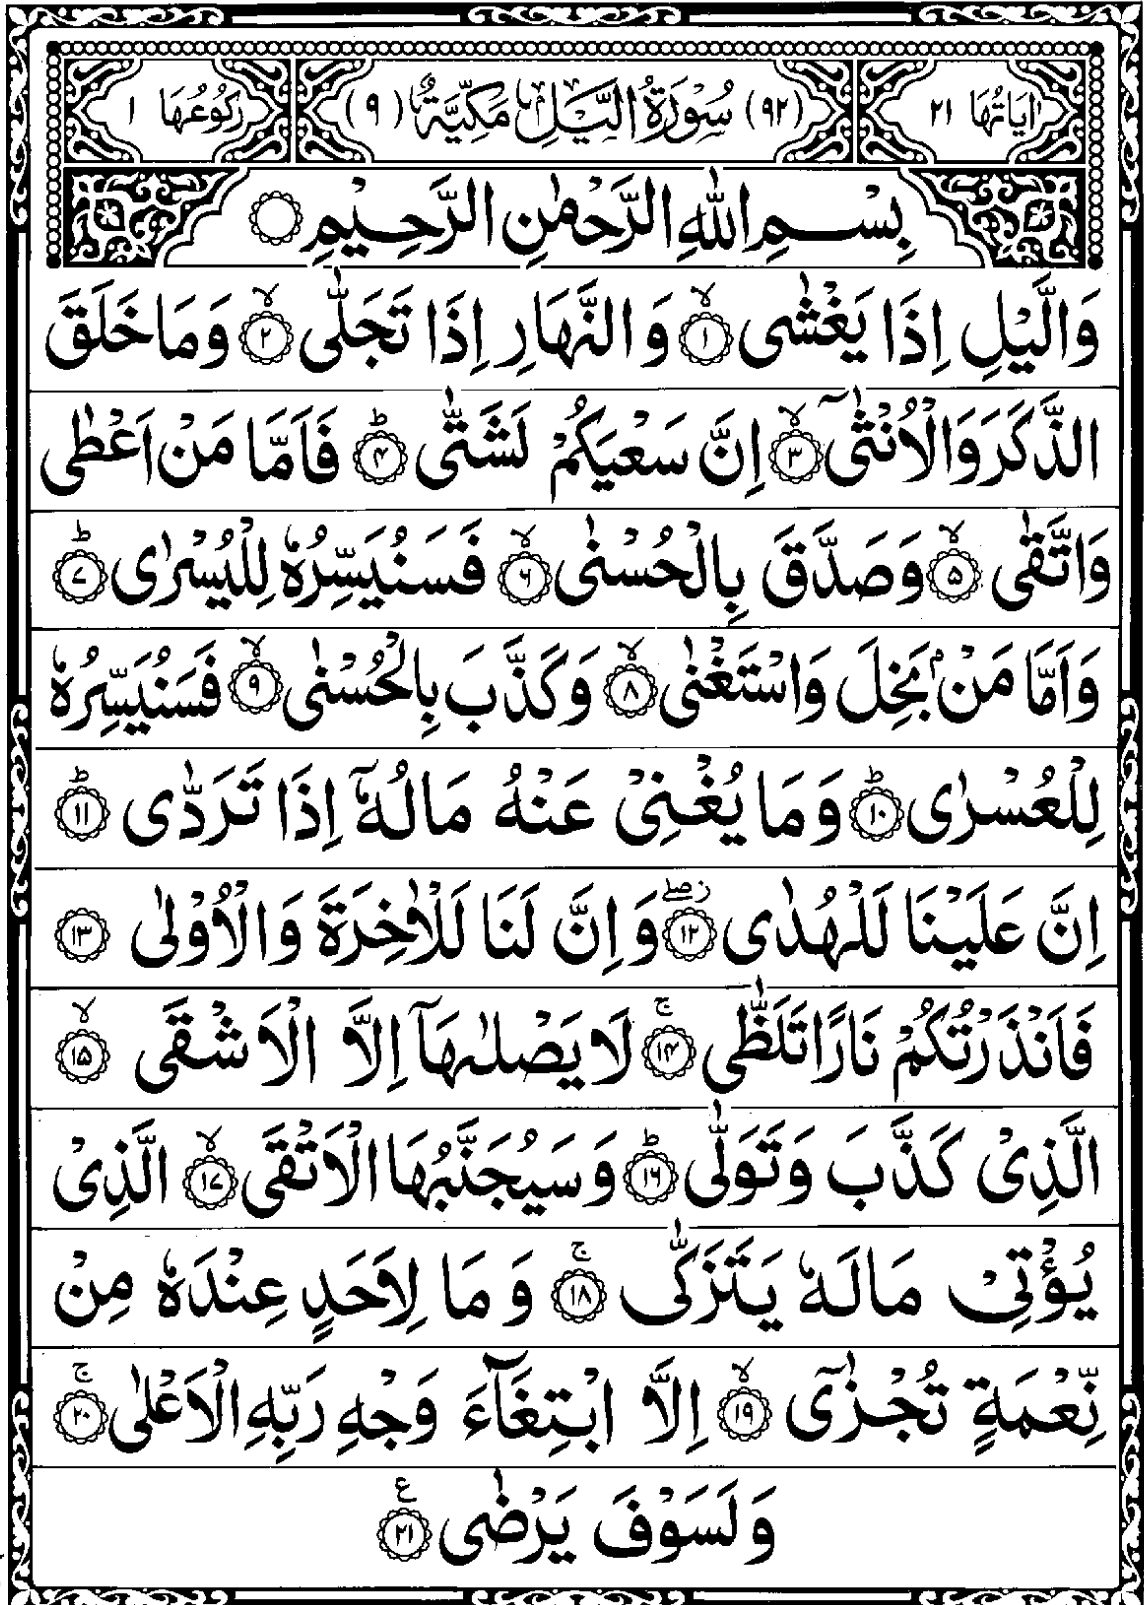 اٰيَاتُهَا ٢١ (٩٢) سُوْرَةُ الَّيْلِ مَكِّيَّةٌ (٩) رُكُوْعُهَا ١
بِسْمِ اللّٰهِ الرَّحْمٰنِ الرَّحِيْمِ
وَالَّيْلِ اِذَا يَغْشٰىۙ‏ ﴿۱﴾ وَالنَّهَارِ اِذَا تَجَلّٰىۙ‏ ﴿۲﴾ وَمَا خَلَقَ
الذَّكَرَ وَالْاُنْثٰٓىۙ‏ ﴿۳﴾ اِنَّ سَعْيَكُمْ لَشَتّٰىؕ‏ ﴿۴﴾ فَاَمَّا مَنْ اَعْطٰى
وَاتَّقٰىۙ‏ ﴿۵﴾ وَصَدَّقَ بِالْحُسْنٰىۙ‏ ﴿۶﴾ فَسَنُيَسِّرُهٗ لِلْيُسْرٰىؕ‏ ﴿۷﴾
وَاَمَّا مَنْۢ بَخِلَ وَاسْتَغْنٰىۙ‏ ﴿۸﴾ وَكَذَّبَ بِالْحُسْنٰىۙ‏ ﴿۹﴾ فَسَنُيَسِّرُهٗ
لِلْعُسْرٰىؕ‏ ﴿۱۰﴾ وَمَا يُغْنِىْ عَنْهُ مَالُهٗۤ اِذَا تَرَدّٰىؕ‏ ﴿۱۱﴾
اِنَّ عَلَيْنَا لَلْهُدٰى ۖ‏ ﴿۱۲﴾ وَاِنَّ لَنَا لَلْاٰخِرَةَ وَالْاُوْلٰى‏ ﴿۱۳﴾
فَاَنْذَرْتُكُمْ نَارًا تَلَظّٰىۚ‏ ﴿۱۴﴾ لَا يَصْلٰىهَاۤ اِلَّا الْاَشْقَىۙ‏ ﴿۱۵﴾
الَّذِىْ كَذَّبَ وَتَوَلّٰىؕ‏ ﴿۱۶﴾ وَسَيُجَنَّبُهَا الْاَتْقَىۙ‏ ﴿۱۷﴾ الَّذِىْ
يُؤْتِىْ مَالَهٗ يَتَزَكّٰىۚ‏ ﴿۱۸﴾ وَمَا لِاَحَدٍ عِنْدَهٗ مِنْ
نِّعْمَةٍ تُجْزٰٓىۙ‏ ﴿۱۹﴾ اِلَّا ابْتِغَآءَ وَجْهِ رَبِّهِ الْاَعْلٰىۚ‏ ﴿۲۰﴾
وَلَسَوْفَ يَرْضٰى ع ﴿۲۱﴾